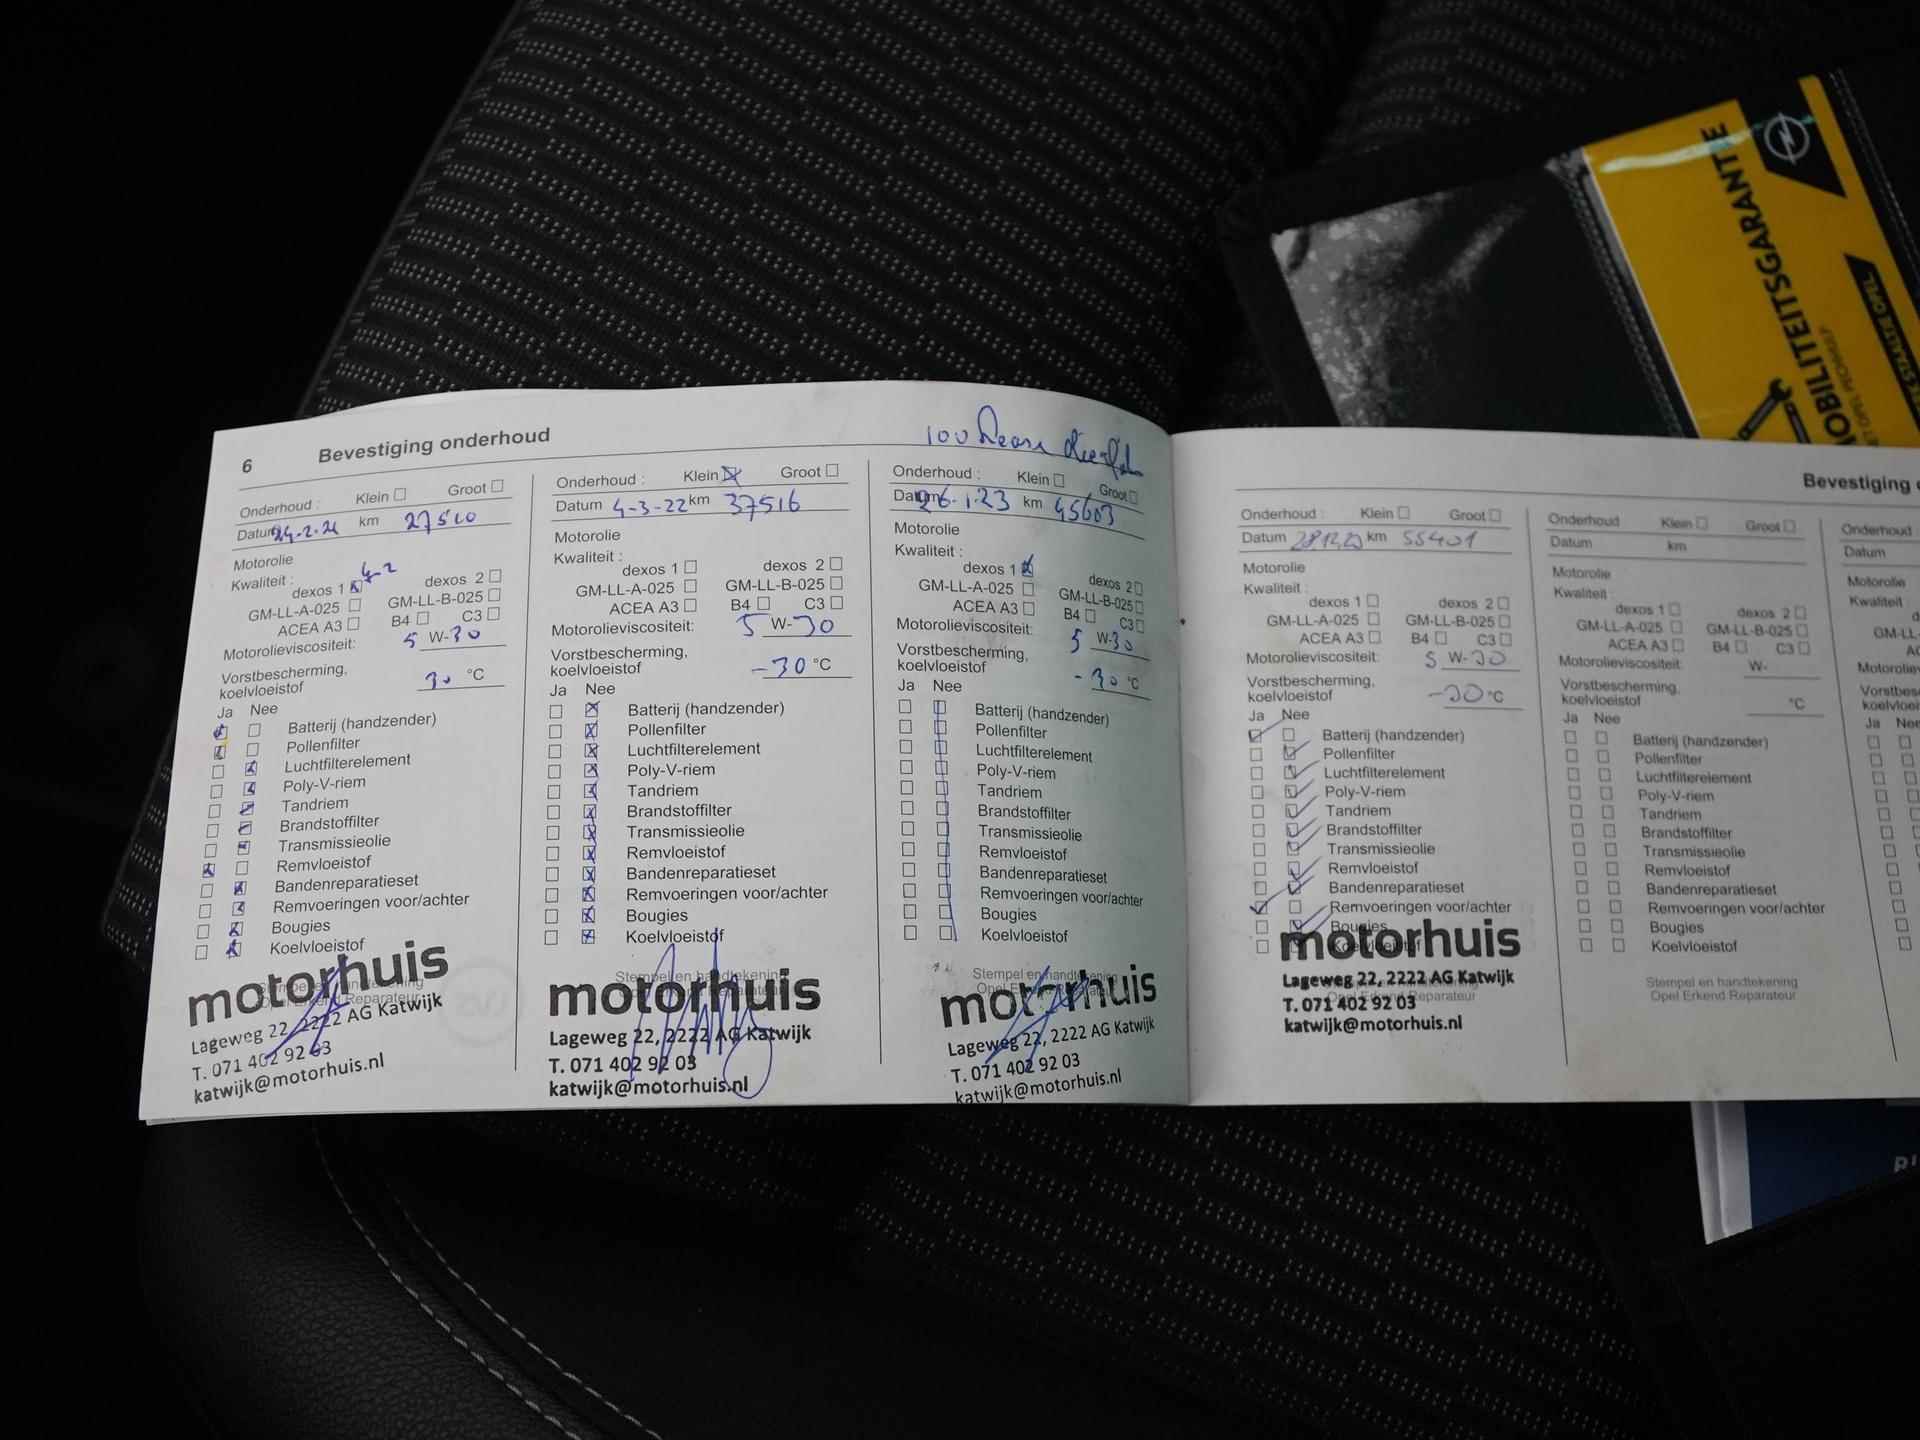 6 Bevestiging onderhoud
100
Onderhoud : Klein Groot
Datum 24-2-21 km 27510
Motorolie
Kwaliteit :
dexos 1 dexos 2
GM-LL-A-025 GM-LL-B-025
ACEA A3 B4 C3
Motorolieviscositeit: 5 W-30
Vorstbescherming,
koelvloeistof 30 °C
Ja Nee
Batterij (handzender)
Pollenfilter
Luchtfilterelement
Poly-V-riem
Tandriem
Brandstoffilter
Transmissieolie
Remvloeistof
Bandenreparatieset
Remvoeringen voor/achter
Bougies
Koelvloeistof
motorhuis
Lageweg 22, 2222 AG Katwijk
T. 071 402 92 03
katwijk@motorhuis.nl
Onderhoud : Klein Groot
Datum 4-3-22 km 37516
Motorolie
Kwaliteit :
dexos 1 dexos 2
GM-LL-A-025 GM-LL-B-025
ACEA A3 B4 C3
Motorolieviscositeit: 5 W-30
Vorstbescherming,
koelvloeistof -30 °C
Ja Nee
Batterij (handzender)
Pollenfilter
Luchtfilterelement
Poly-V-riem
Tandriem
Brandstoffilter
Transmissieolie
Remvloeistof
Bandenreparatieset
Remvoeringen voor/achter
Bougies
Koelvloeistof
Stempel en handtekening
motorhuis
Lageweg 22, 2222 AG Katwijk
T. 071 402 92 03
katwijk@motorhuis.nl
Onderhoud : Klein Groot
Datum 26-1-23 km 45603
Motorolie
Kwaliteit :
dexos 1 dexos 2
GM-LL-A-025 GM-LL-B-025
ACEA A3 B4 C3
Motorolieviscositeit: 5 W-30
Vorstbescherming,
koelvloeistof -30 °C
Ja Nee
Batterij (handzender)
Pollenfilter
Luchtfilterelement
Poly-V-riem
Tandriem
Brandstoffilter
Transmissieolie
Remvloeistof
Bandenreparatieset
Remvoeringen voor/achter
Bougies
Koelvloeistof
Stempel en handtekening
motorhuis
Lageweg 22, 2222 AG Katwijk
T. 071 402 92 03
katwijk@motorhuis.nl
Bevestiging
Onderhoud : Klein Groot
Datum 28.12.23 km 55401
Motorolie
Kwaliteit :
dexos 1 dexos 2
GM-LL-A-025 GM-LL-B-025
ACEA A3 B4 C3
Motorolieviscositeit: 5 W-30
Vorstbescherming,
koelvloeistof -30 °C
Ja Nee
Batterij (handzender)
Pollenfilter
Luchtfilterelement
Poly-V-riem
Tandriem
Brandstoffilter
Transmissieolie
Remvloeistof
Bandenreparatieset
Remvoeringen voor/achter
Bougies
Koelvloeistof
motorhuis
Lageweg 22, 2222 AG Katwijk
Opel Erkend Reparateur
T. 071 402 92 03
katwijk@motorhuis.nl
Onderhoud Klein Groot
Datum km
Motorolie
Kwaliteit :
dexos 1 dexos 2
GM-LL-A-025 GM-LL-B-025
ACEA A3 B4 C3
Motorolieviscositeit: W-
Vorstbescherming,
koelvloeistof °C
Ja Nee
Batterij (handzender)
Pollenfilter
Luchtfilterelement
Poly-V-riem
Tandriem
Brandstoffilter
Transmissieolie
Remvloeistof
Bandenreparatieset
Remvoeringen voor/achter
Bougies
Koelvloeistof
Stempel en handtekening
Opel Erkend Reparateur
Onderhoud :
Datum
Motorolie
Kwaliteit :
GM-LL-
Ja Nee
MOBILITEITSGARANTIE